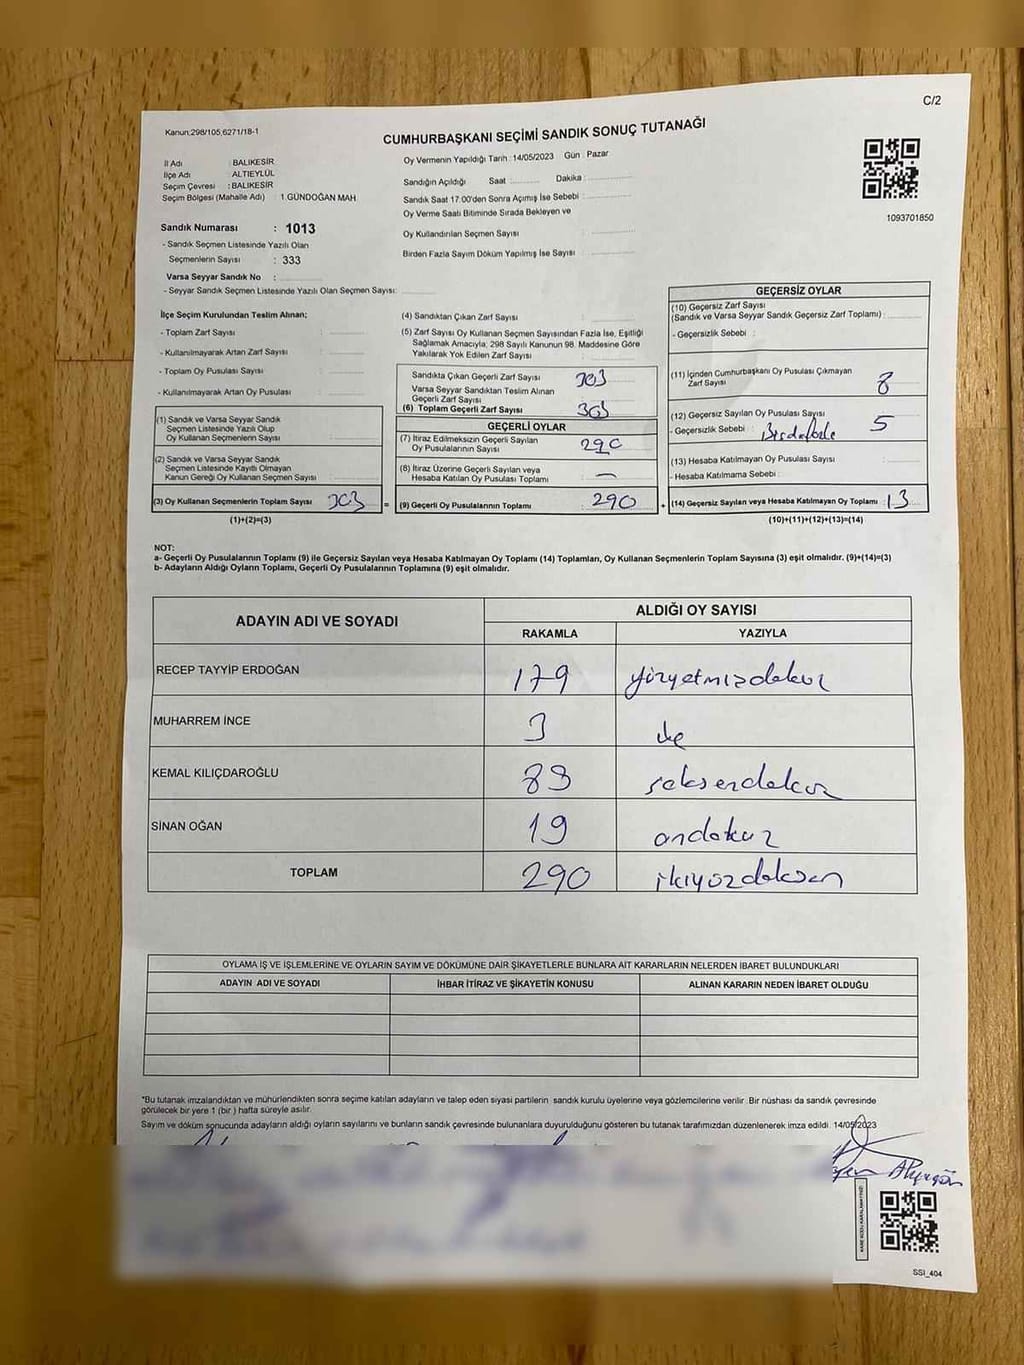 C/2
Kanun:298/105,6271/18-1
CUMHURBAŞKANI SEÇİMİ SANDIK SONUÇ TUTANAĞI
İl Adı : BALIKESİR
İlçe Adı : ALTIEYLÜL
Seçim Çevresi : BALIKESİR
Seçim Bölgesi (Mahalle Adı) : 1.GÜNDOĞAN MAH.
Sandık Numarası : 1013
- Sandık Seçmen Listesinde Yazılı Olan
Seçmenlerin Sayısı : 333
Varsa Seyyar Sandık No :
- Seyyar Sandık Seçmen Listesinde Yazılı Olan Seçmen Sayısı:
Oy Vermenin Yapıldığı Tarih :14/05/2023 Gün : Pazar
Sandığın Açıldığı Saat Dakika :
Sandık Saat 17:00'den Sonra Açımış İse Sebebi :
Oy Verme Saati Bitiminde Sırada Bekleyen ve
Oy Kullandırılan Seçmen Sayısı :
Birden Fazla Sayım Döküm Yapılmış İse Sayısı :
1093701850
İlçe Seçim Kurulundan Teslim Alınan;
- Toplam Zarf Sayısı :
- Kullanılmayarak Artan Zarf Sayısı :
- Toplam Oy Pusulası Sayısı :
- Kullanılmayarak Artan Oy Pusulası :
(1) Sandık ve Varsa Seyyar Sandık
Seçmen Listesinde Yazılı Olup
Oy Kullanan Seçmenlerin Sayısı :
(2) Sandık ve Varsa Seyyar Sandık
Seçmen Listesinde Kayıtlı Olmayan
Kanun Gereği Oy Kullanan Seçmen Sayısı :
(3) Oy Kullanan Seçmenlerin Toplam Sayısı 303
(1)+(2)=(3)
(4) Sandıktan Çıkan Zarf Sayısı :
(5) Zarf Sayısı Oy Kullanan Seçmen Sayısından Fazla İse, Eşitliği
Sağlamak Amacıyla; 298 Sayılı Kanunun 98. Maddesine Göre
Yakılarak Yok Edilen Zarf Sayısı :
Sandıkta Çıkan Geçerli Zarf Sayısı : 303
Varsa Seyyar Sandıktan Teslim Alınan
Geçerli Zarf Sayısı :
(6) Toplam Geçerli Zarf Sayısı : 303
GEÇERLİ OYLAR
(7) İtiraz Edilmeksizin Geçerli Sayılan
Oy Pusulasının Sayısı : 290
(8) İtiraz Üzerine Geçerli Sayılan veya
Hesaba Katılan Oy Pusulası Toplamı : —
(9) Geçerli Oy Pusulalarının Toplamı : 290
GEÇERSİZ OYLAR
(10) Geçersiz Zarf Sayısı
(Sandık ve Varsa Seyyar Sandık Geçersiz Zarf Toplamı) :
- Geçersizlik Sebebi :
(11) İçinden Cumhurbaşkanı Oy Pusulası Çıkmayan
Zarf Sayısı : 8
(12) Geçersiz Sayılan Oy Pusulası Sayısı : 5
- Geçersizlik Sebebi :
(13) Hesaba Katılmayan Oy Pusulası Sayısı :
- Hesaba Katılmama Sebebi :
(14) Geçersiz Sayılan veya Hesaba Katılmayan Oy Toplamı : 13
(10)+(11)+(12)+(13)=(14)
NOT:
a- Geçerli Oy Pusulalarının Toplamı (9) ile Geçersiz Sayılan veya Hesaba Katılmayan Oy Toplamı (14) Toplamları, Oy Kullanan Seçmenlerin Toplam Sayısına (3) eşit olmalıdır. (9)+(14)=(3)
b- Adayların Aldığı Oyların Toplamı, Geçerli Oy Pusulalarının Toplamına (9) eşit olmalıdır.
ADAYIN ADI VE SOYADI
ALDIĞI OY SAYISI
RAKAMLA YAZIYLA
RECEP TAYYİP ERDOĞAN 179 yüzyetmişdokuz
MUHARREM İNCE 3 üç
KEMAL KILIÇDAROĞLU 89 seksendokuz
SİNAN OĞAN 19 ondokuz
TOPLAM 290 ikiyüzdoksan
OYLAMA İŞ VE İŞLEMLERİNE VE OYLARIN SAYIM VE DÖKÜMÜNE DAİR ŞİKAYETLERLE BUNLARA AİT KARARLARIN NELERDEN İBARET BULUNDUKLARI
ADAYIN ADI VE SOYADI İHBAR İTİRAZ VE ŞİKAYETİN KONUSU ALINAN KARARIN NEDEN İBARET OLDUĞU
*Bu tutanak imzalandıktan ve mühürlendikten sonra seçime katılan adayların ve talep eden siyasi partilerin sandık kurulu üyelerine veya gözlemcilerine verilir. Bir nüshası da sandık çevresinde
görülecek bir yere 1 (bir ) hafta süreyle asılır.
Sayım ve döküm sonucunda adayların aldığı oyların sayılarını ve bunların sandık çevresinde bulunanlara duyurulduğunu gösteren bu tutanak tarafımızdan düzenlenerek imza edildi. 14/05/2023
KARE KODU KARALAMAYINIZ!
SSI_404